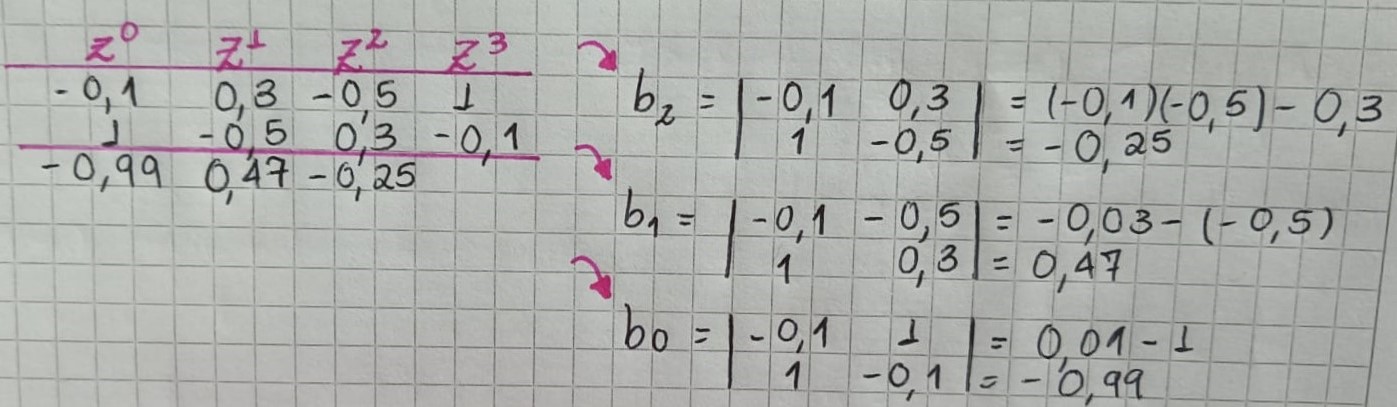 z⁰ z¹ z² z³
-0,1 0,3 -0,5 1
1 -0,5 0,3 -0,1
-0,99 0,47 -0,25
b₂ = | -0,1 0,3 | = (-0,1)(-0,5) - 0,3
| 1 -0,5 | = -0,25
b₁ = | -0,1 -0,5 | = -0,03 - (-0,5)
| 1 0,3 | = 0,47
b0 = | -0,1 1 | = 0,01 - 1
| 1 -0,1 | = -0,99